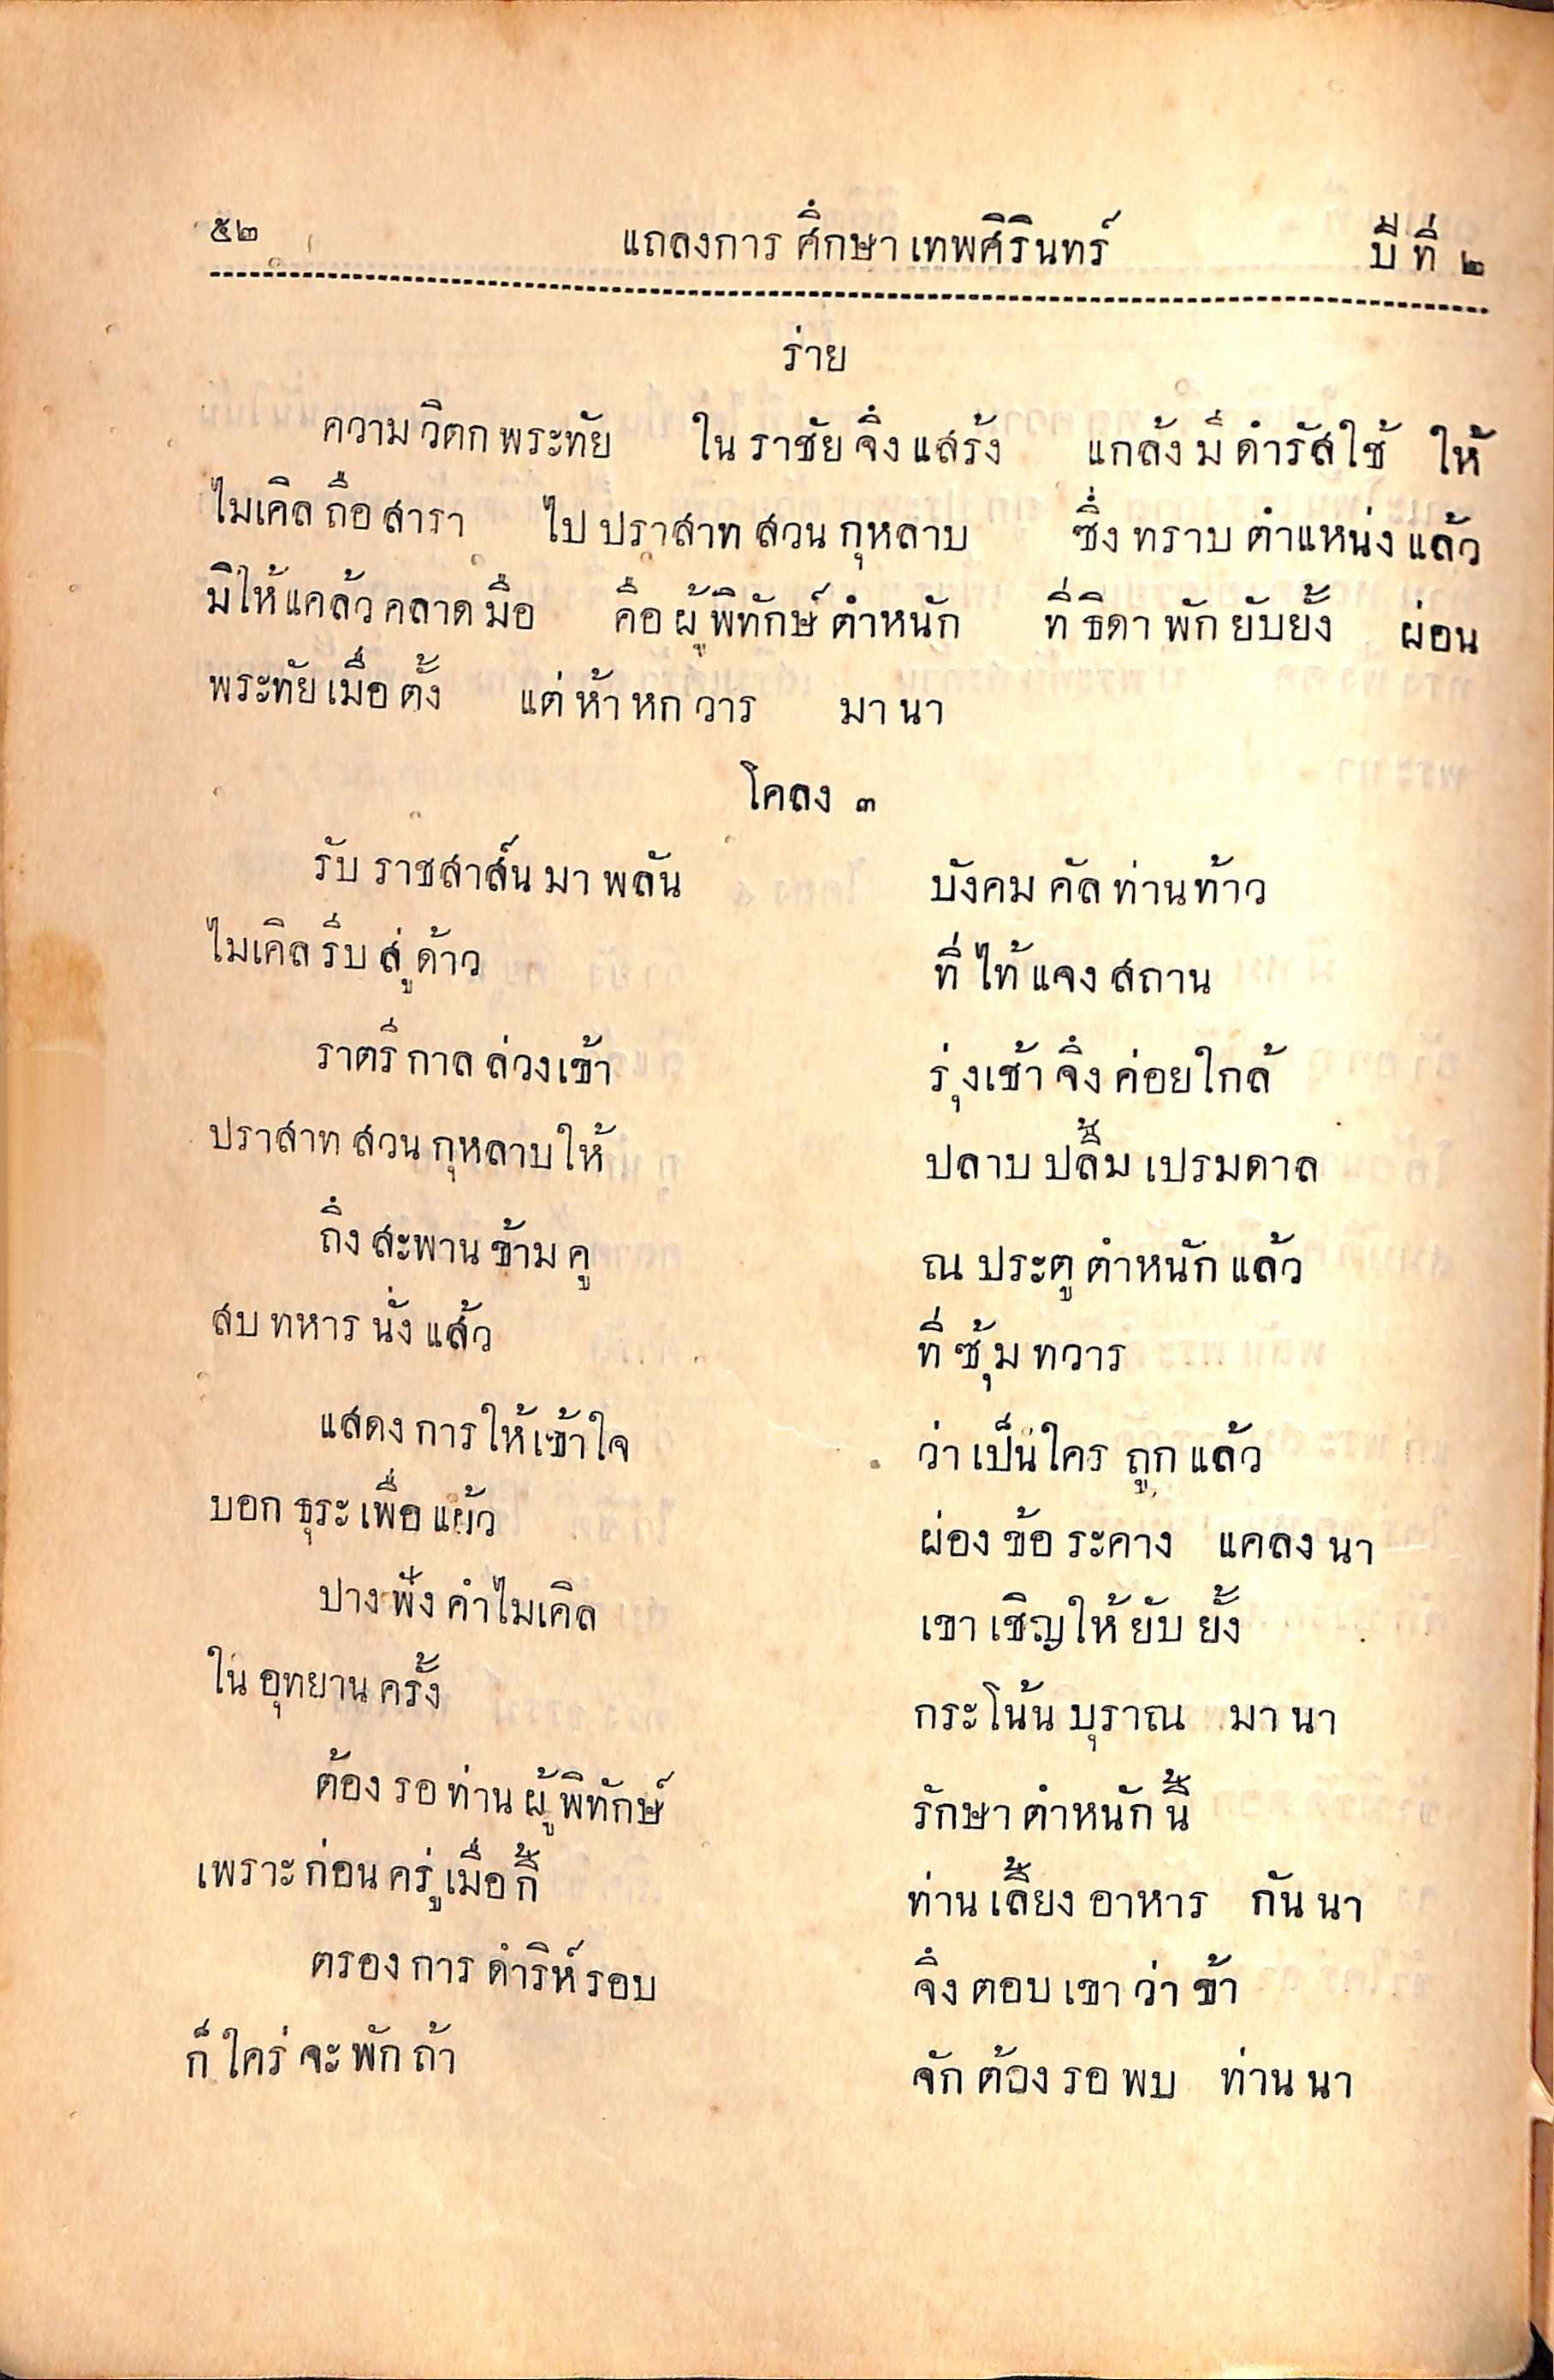 ๕๒ แถลงการศึกษาเทพศิรินทร์ ปีที่ ๒
ร่าย
ความวิตกพระทัย ในราชัยจึ่งแสร้ง แกล้งมีดำรัสใช้ ให้
ไมเคิลถือสารา ไปปราสาทสวนกุหลาบ ซึ่งทราบตำแหน่งแล้ว
มิให้แคล้วคลาดมือ คือผู้พิทักษ์ตำหนัก ที่ธิดาพักยับยั้ง ผ่อน
พระทัยเมื่อตั้ง แต่ห้าหกวาร มานา
โคลง ๓
รับราชสาส์นมาพลัน บังคมคัลท่านท้าว
ไมเคิลรีบสู่ด้าว ที่ไท้แจงสถาน
ราตรีกาลล่วงเข้า รุ่งเช้าจึ่งค่อยใกล้
ปราสาทสวนกุหลาบให้ ปลาบปลื้มเปรมดาล
ถึงสะพานข้ามคู ณประตูตำหนักแล้ว
สบทหารนั่งแส้ว ที่ซุ้มทวาร
แสดงการให้เข้าใจ ว่าเป็นใครถูกแล้ว
บอกธุระเพื่อแผ้ว ผ่องข้อระคาง แคลงนา
ปางฟังคำไมเคิล เขาเชิญให้ยับยั้ง
ในอุทยานครั้ง กระโน้นบุราณ มานา
ต้องรอท่านผู้พิทักษ์ รักษาตำหนักนี้
เพราะก่อนครู่เมื่อกี้ ท่านเลี้ยงอาหาร กันนา
ตรองการดำริห์รอบ จึ่งตอบเขาว่าข้า
ก็ใคร่จะพักถ้า จักต้องรอพบ ท่านนา